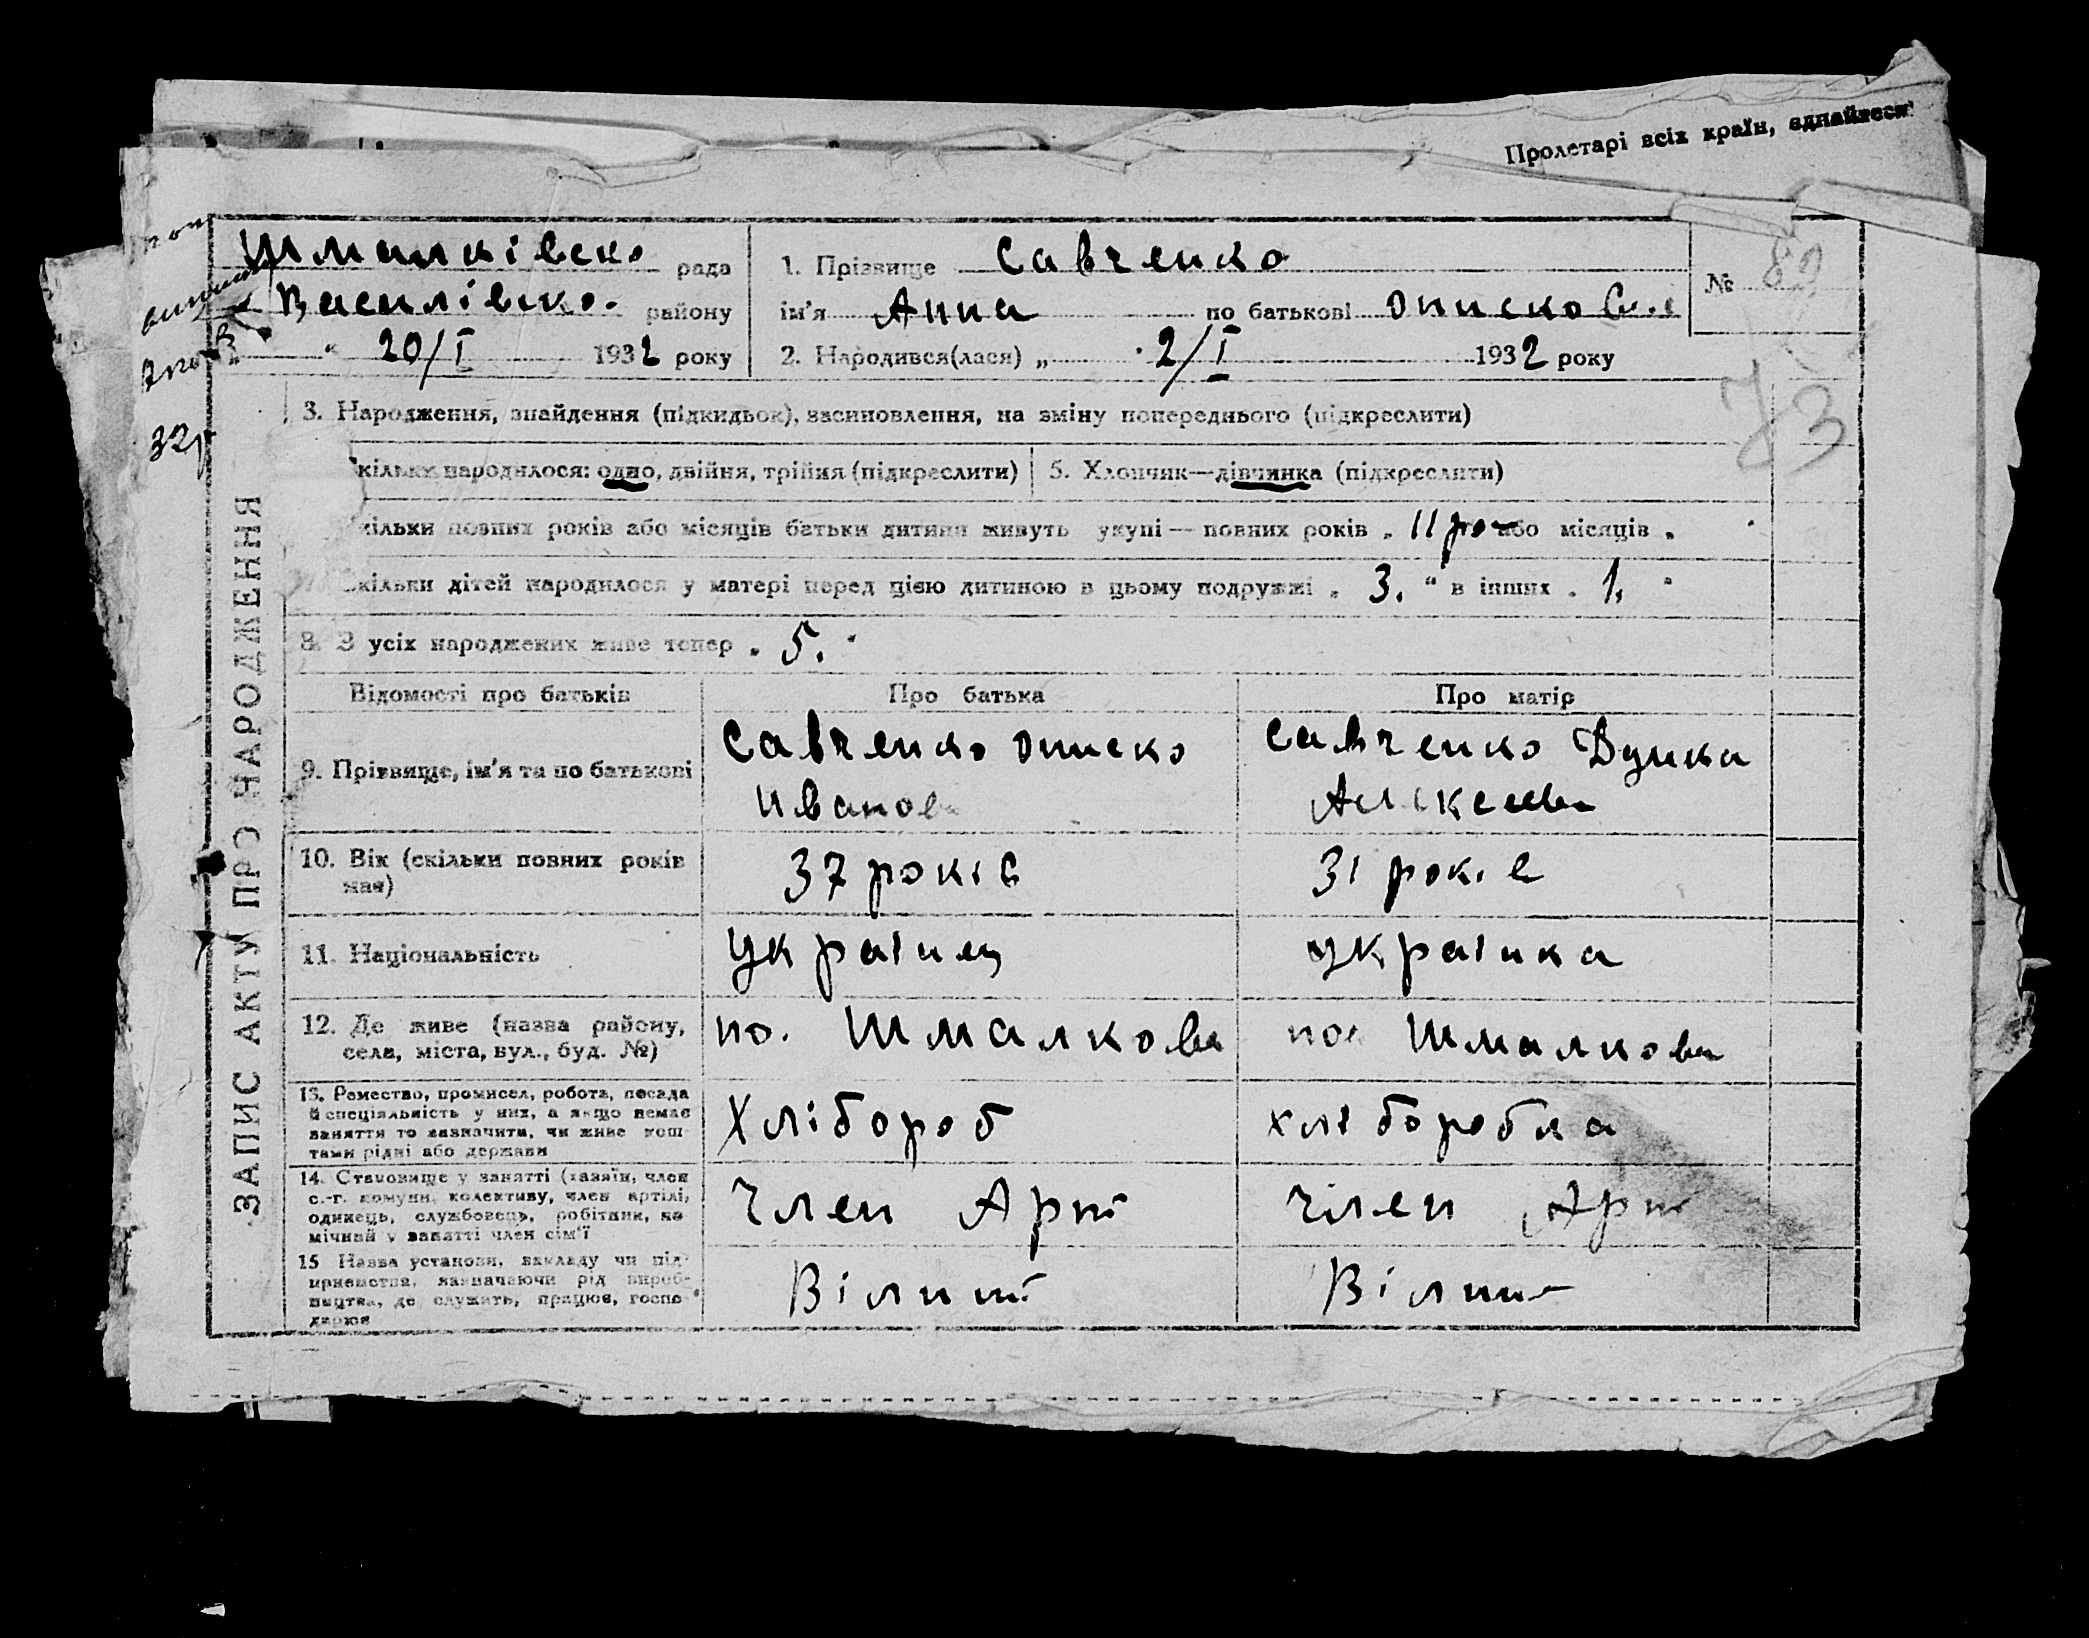 Пролетарі всіх країн, єднайтеся
Шмалківсько рада
Василівско. району
" 20/I 1932 року
1. Прізвище Савченко
ім'я Анна по батькові Описковн
2. Народився(лася) „ 2/I 1932 року
№ 82
73
32р
3. Народження, знайдення (підкидьок), засиновлення, на зміну попереднього (підкреслити)
кільки народилося: одно, двійня, трійня (підкреслити)
5. Хлопчик—дівчинка (підкреслити)
кільки повних років або місяців батьки дитини живуть укупі — повних років „ 11 ро або місяців „
кільки дітей народилося у матері перед цією дитиною в цьому подружжі „ 3. " в інших . 1. "
8. З усіх народжених живе тепер „ 5. "
ЗАПИС АКТУ ПРО НАРОДЖЕННЯ
Відомості про батьків
Про батька
Про матір
9. Прізвище, ім'я та по батькові
Савченко Описко
Иванов
Савченко Дунка
Алексеевн
10. Вік (скільки повних років
має)
37 років
31 років
11. Національність
Украінц
украінка
12. Де живе (назва району,
села, міста, вул., буд. №)
по. Шмалкова
пос Шмалкова
13. Ремество, промисел, робота, посада
й спеціяльність у них, а якщо немає
заняття то зазначити, чи живе кош-
тами рідні або держави
Хлібороб
хліборобка
14. Становище у занятті (хазяїн, член
с.-г. комуни, колективу, член артілі,
одинець, службовець, робітник, по
мічний у занятті член сім'ї
Член Арт
член Арт
15 Назва установи, закладу чи під-
приємства, зазначаючи рід вироб-
ництва, де служить, працює, госпо-
дарює